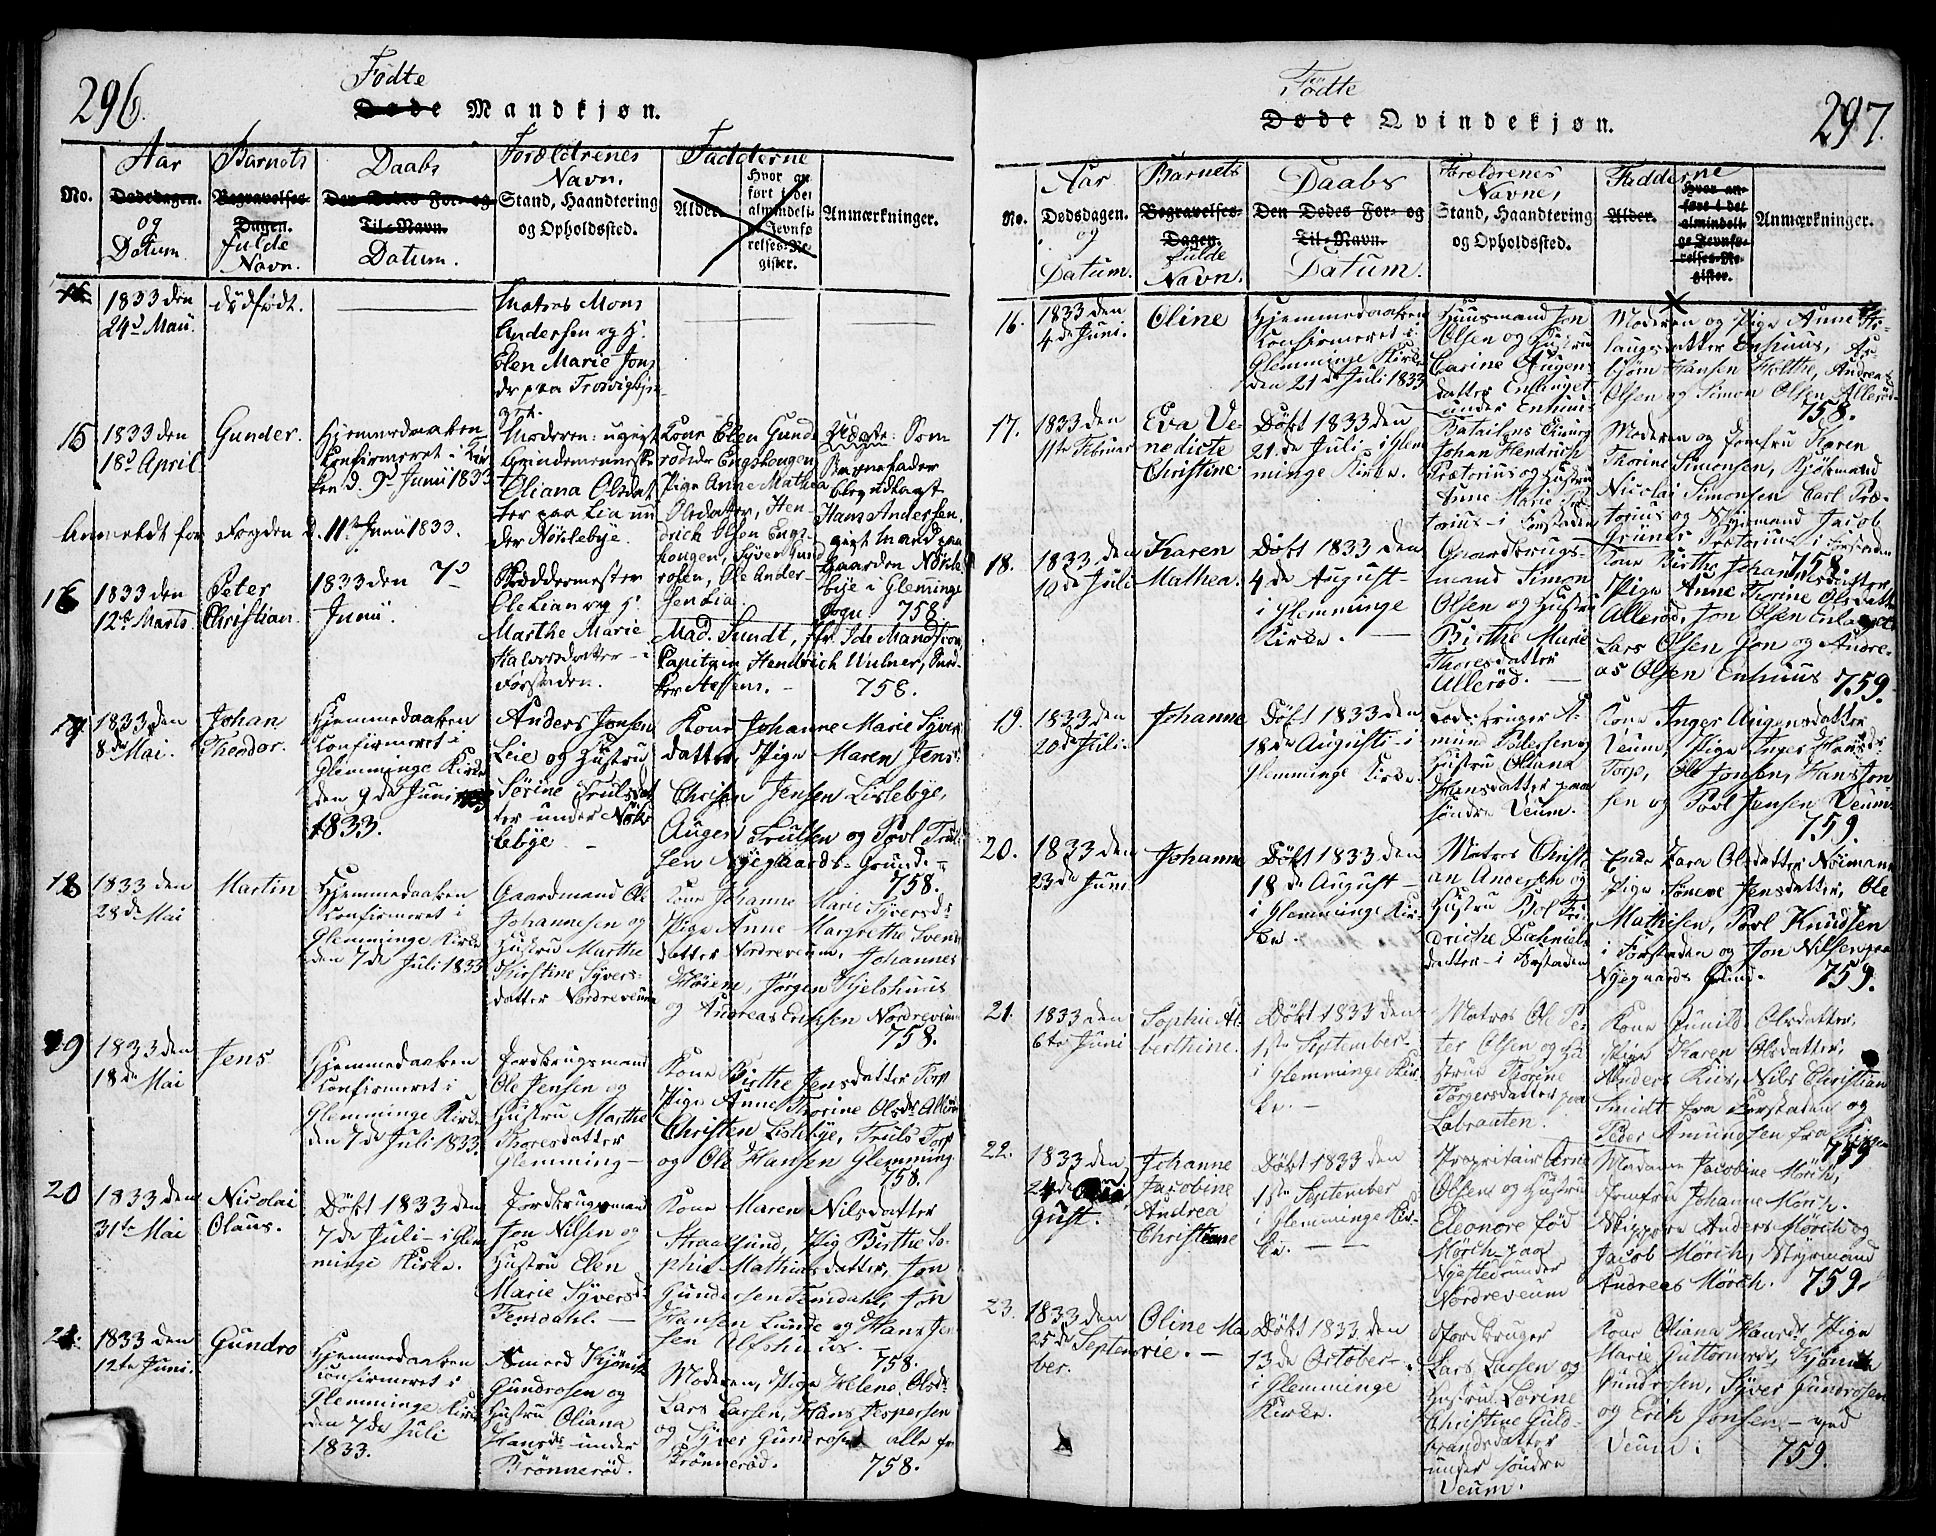 296.
Fødte
Døde Mandkjøn.
Aar
Barnets
Daabs
Forældrenes
Fadderne
No.
Dødsdagen.
Begravelses-
Den Dødes For- og
Navn.
Alder.
Hvor an-
ført i det
almindeli-
ge Jevnfø-
relses-Re-
gister.
Anmærkninger.
og
Dagen.
Til-Navn.
Stand, Haandtering
Datum
fulde
Datum.
og Opholdssted.
Navn.
1833 den
24d Maii
dødfødt.
Matros Mons
Andersen og H:
Elen Marie Jons
15
1833 den
18d April
Gunder.
Hjemmedaaben
Confirmeret i Kir
ken d. 9d Junii 1833
Moderen: ugivt
Qvindemenneske
Oliana Olsdat
ter paa Lia un
der Nørlebye.
Kone Elen Gund
Engehougen
Pige Anne Mathea
Olsdatter, Hen
drich Olsen Engs
hougen, Syver Gund
rosen, Ole Ander-
sen Lia.
Uægte: Som
Barnefader
Hans Andersen,
gift Mand paa
Gaarden Nørle
bye i Glemminge
Sogn 758
Anmeldt for Fogden d. 11te Junii 1833.
16
1833 den
12te Marts
Peter
Christian.
1833 den 7d
Junii
Skræddermester
Ole Lian og H.
Marthe Marie
Halvorsdatter - i
Forstaden.
Mad. Sundt,
Capitain Hendrich Wulner,
758.
17
1833 den
8de Mai.
Johan
Theodor.
Hjemmedaaben
Confirmeret i
Glemminge Kirke
den 9de Juni
1833.
Anders Jensen
Lie og Hustru
Sørine Trulsdat
ter under Nørle
lebye -
Kone Johanne Marie Syvers
datter, Pige Maren Jens-
Christen Jensen Lislebye,
Augen Trulsen og Povl Trul
sen Nyegaards-Grund.-
758.
18
1833 den
28de Mai
Martin
Hjemmedaaben
Confirmeret i
Glemminge Kirke
den 7de Juli 1833
Gaardmand Ole
Johannesen og
Hustru Marthe
Kirstine Syvers-
datter Nordreveum
Kone Johanne Marie Syversd:
Pige Anne Margrethe Svends
datter Nordreveum, Johannes
Høiem, Jørgen Kjelshuus
og Andreas Ericksen Nordreveum
758.
19
1833 den
18de Mai
Jens
Hjemmedaaben
Confirmeret i
Glemminge Kirke
den 7de Juli 1833.
Jordbrugsmand
Ole Jensen og
Hustru Marthe
Thoresdatter
Glemming -
Kone Birthe Jensdatter Torp
Pige Anne Thorine Olsd: Allerød
Christen Lislebye, Truls Torp
og Ole Hansen Glemming
758.
20
1833 den
31te Mai
Nicolai
Olaus.
Døbt 1833 den
7de Juli - i Glem
minge Kirke.
Jordbrugsmand
Jon Nilsen og
Hustru Elen
Marie Syversd:
Femdahl. -
Kone Maren Nilsdatter
Straalsund, Pig Birthe So-
phie Mathiasdatter, Jon
Gundersen Femdahl, Jon
Hansen Lunde og Hans Jen
sen Alfshuus.
758.
21.
1833 den
12te Juni.
Gundro
Hjemmedaaben
Confirmeret i
Glemminge Kirke
den 7de Juli
1833.
Gundrosen og
Hustru Oliana
Hansd: under
Brønnerød.
Moderen, Pige Helene Olsd:
Lars Larsen, Hans Jespersen
og Syver Gundrosen alle fra
Brønnerød.
758.
297.
Fødte
Døde Qvindekjøn.
Aar
Barnets
Daabs
Forældrenes
Fadderne
No.
Dødsdagen.
Begravelses-
Den Dødes For- og
Navne,
Stand, Haandtering
Alder.
Hvor an-
ført i det
almindeli-
ge Jevnfø-
relses-Re-
gister.
Anmærkninger.
og
Dagen.
Til-Navn.
og Opholdssted.
Datum.
fulde
Navn.
Datum.
16.
1833 den
4de Juni.
Oline
Hjemmedaaben
Confirmeret i
Glemminge Kirke
den 21de Juli 1833
Huusmand Jon
Olsen og Hustru
Carine Augens
datter Enhuget
under Enhuus
Moderen og Pige Anne As-
laugsdatter Enhuus,
Hansen Holthe, Andreas
Olsen og Simon Olsen Allerød
758.
17.
1833 den
11te Februar
Eva Be
nedicte
Christine
Døbt 1833 den
21de Juli - i Glem
minge Kirke.
Batailons Chirurg
Johan Hendrich
Prætorius og Hustru
Anne Marie Præ
torius - i Forstaden
Moderen og Jomfru Maren
Thorine Simonsen, Kjøbmand
Nicolai Simonsen Carl Præ-
torius og Styrmand Jacob
Grüner Prætorius i Forstaden
758.
18.
1833 den
10de Juli
Karen
Mathea.
Døbt 1833 den
4de August -
i Glemminge
Kirke. -
Gaardbrugs-
mand Simon
Olsen og Hustru
Birthe Marie
Thoresdatter
Allerød. -
Kone Birthe Johannesdatter
Pige Anne Thorine Olsdatter
Allerød, Jon Olsen Enhuget
Lars Olsen Gon og Andre-
as Olsen Enhuus 759
19.
1833 den
20de Juli.
Johanne
Døbt 1833 den
18de Augusti - i
Glemminge Kirke.
Jordbruger A-
mund Pedersen og
Hustru Oliana
Hansdatter paa
søndre Veum.
Kone Inger Augensdatter
Veum, Pige Inger Hansd:
Torp, Ole Jensen, Hans Jon
sen og Povl Jensen Veum.
759
20.
1833 den
23de Juni
Johanne
Døbt 1833 den
18de August -
i Glemminge Kir-
ke.
Matros Christi
an Andersen og
Hustru Bol Fri
driche Dahniels
datter - i Forstaden
Enke Sara Olsdatter Normann
Pige Søneve Jensdatter, Ole
Mathisen, Povl Knudsen
i Forstaden og Jon Nilsen paa
Nyegaards Grund. 759.
21.
1833 den
6te Juni
Sophie Al
berthine.
Døbt 1833 den
1ste September -
i Glemminge Kir-
ke. -
Matros Ole Pe
ter Olsen og Hu
strue Thorine
Torgersdatter paa
Labraaten.
Kone Gunild Olsdatter,
Pige Karen Olsdatter,
Anders Kiis, Nils Christian
Smidt fra Forstaden og
Peder Amundsen fra
759
22.
1833 den
24de Au
gust.
Johanne
Jacobine
Andrea
Christiane
Døbt 1833 den
1ste September
i Glemminge Kir-
ke. -
Propritair Arne
Olsen og Hustru
Eleonore fød
Mørch - paa
Nyested under
Nordreveum
Madame Jacobine Mørch,
Jomfru Johanne Mørch.
Skippere Anders Mørch og
Jacob Mørch, Styrmand
Andreas Mørch. 759.
23.
1833 den
25de Septem
ber.
Oline Ma
rie. -
Døbt 1833 den
13de October -
i Glemminge
Kirke.
Jordbruger
Lars Larsen og
Hustru Lovine
Christine Guld-
brandsdatter
under søndre
Veum.
Kone Oliana Hansd: Pige
Marie Guttormsd:
Gundrosen, Syver Gundrosen
og Erik Jonsen, - ved
Veum.
759.